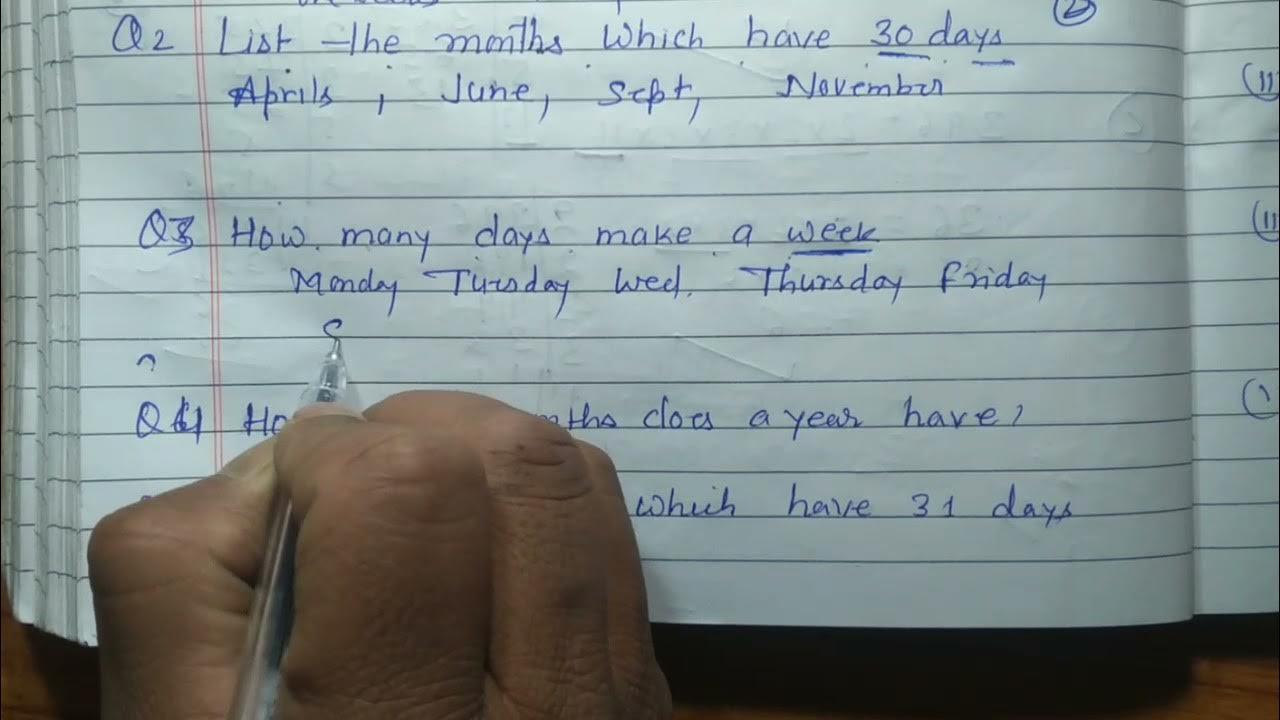 Q2 List the months which have 30 days
Aprils, June, Sept, November
Q3 How many days make a week
Monday Tursday Wed. Thursday Friday
S
Q4 Ho nths does a year have?
which have 31 days